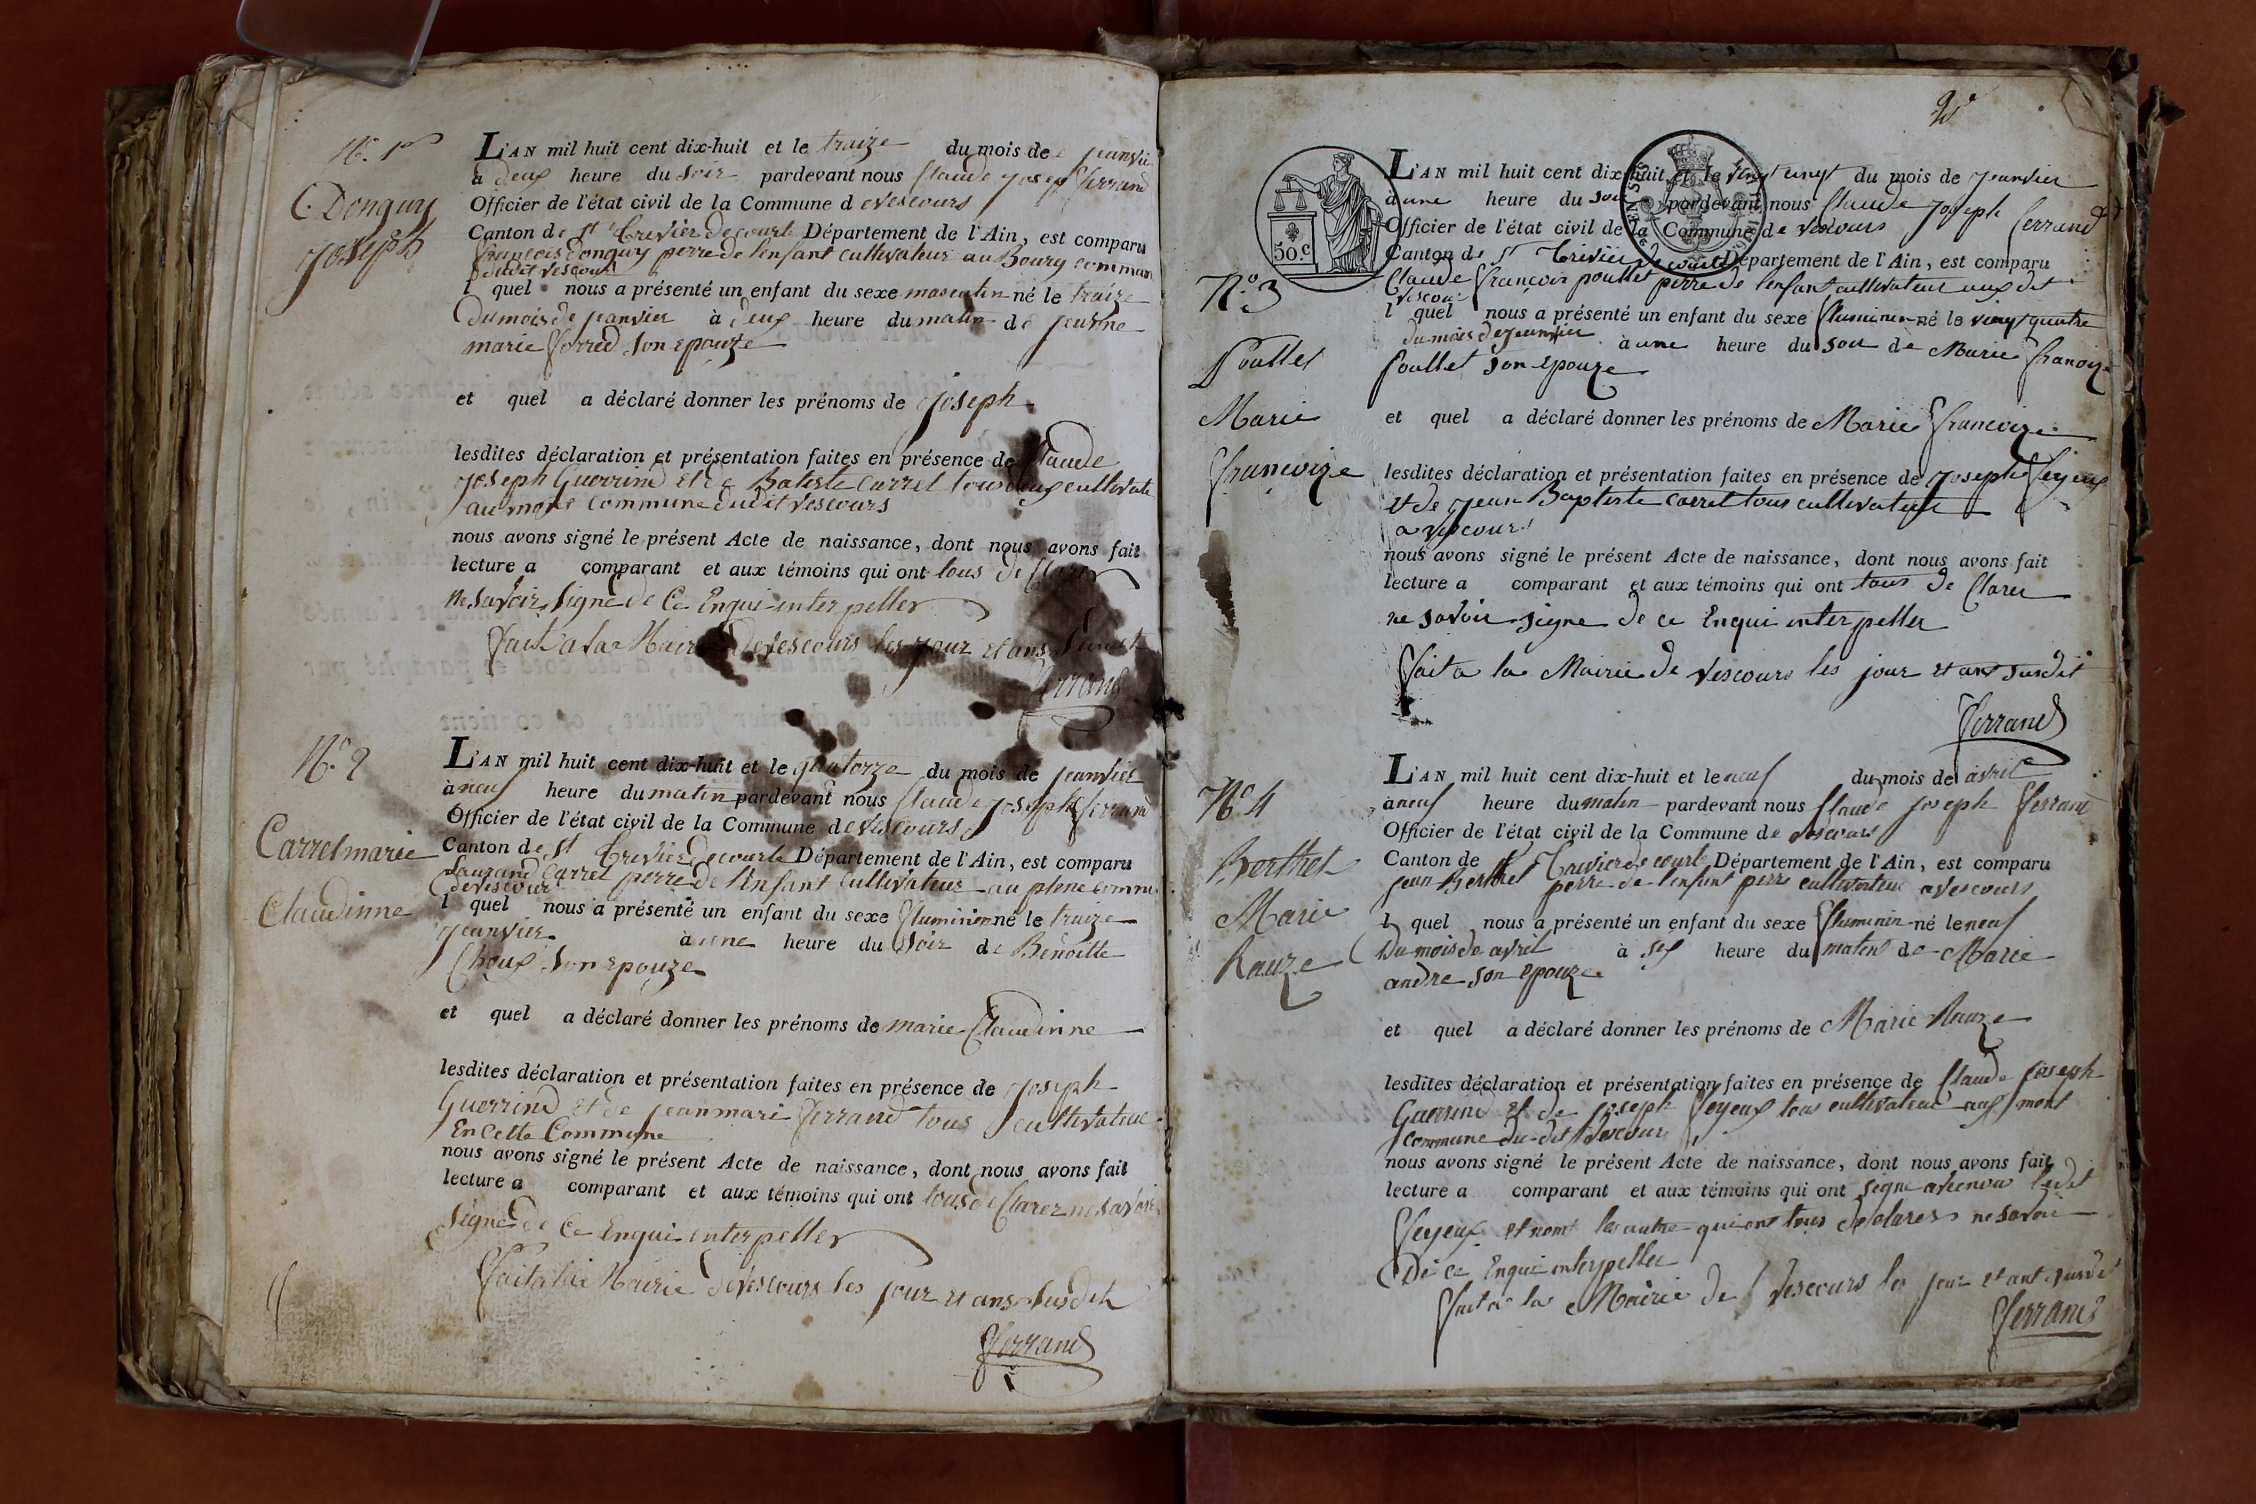 N.° 1er
C. Donguy
Joseph
L'AN mil huit cent dix-huit et le traize du mois de jeanvie
à deux heure du soir pardevant nous Claude joseph ferrand
Officier de l'état civil de la Commune de vescours
Canton de St Trivier de courte Département de l'Ain, est comparu
francois donguy perre de lenfant cultivateur au Bourg commun
dudit vescour
l quel nous a présenté un enfant du sexe masculin né le traize
du mois de janvier à deux heure du matin de jeanne
marie ferred son epouze
et quel a déclaré donner les prénoms de joseph
lesdites déclaration et présentation faites en présence de Claude
joseph Guerrind et de Batiste carrel tous deux cultivate
au mont commune dudit vescours
nous avons signé le présent Acte de naissance, dont nous avons fait
lecture a comparant et aux témoins qui ont tous de Clarer
ne savoir signe de Ce Enqui inter peller
fait a la Mairie de vescours les jour et ans susdit
ferrand
N.° 2
Carrel marie
Claudinne
L'AN mil huit cent dix-huit et le quatorze du mois de jeanvier
à neuf heure du matin pardevant nous Claude joseph ferrand
Officier de l'état civil de la Commune de vescours
Canton de St Trivier de courte Département de l'Ain, est comparu
Laurand Carrel perre de lenfant Cultivateur au plene commu
de vescour
l quel nous a présenté un enfant du sexe fluminin né le traize
jeanvier à une heure du soir de Benoitte
Choux son epouze
et quel a déclaré donner les prénoms de marie Claudinne
lesdites déclaration et présentation faites en présence de joseph
Guerrind et de jean mari ferrand tous cultivateur
En Cette Commune
nous avons signé le présent Acte de naissance, dont nous avons fait
lecture a comparant et aux témoins qui ont tous de Clarer ne savoir
signe de Ce Enqui interpeller
fait a la Mairie de vescours les jour et ans susdit
ferrand
2e
50. C
N.° 3
Poullet
Marie
francoize
L'AN mil huit cent dix-huit et le vingt cinq du mois de jeanvier
à une heure du soir pardevant nous Claude joseph ferrand
Officier de l'état civil de la Commune de vescours
Canton de St Trivier de courte Département de l'Ain, est comparu
Claude francois poullet perre de lenfant cultivateur aux dit
vescour
l quel nous a présenté un enfant du sexe fluminin né le vingt quatre
du mois de jeanvier à une heure du soir de Marie francoize
poullet son epouze
et quel a déclaré donner les prénoms de Marie francoize
lesdites déclaration et présentation faites en présence de joseph feyeux
et de jean Baptiste carrel tous cultivateur
a vescour
nous avons signé le présent Acte de naissance, dont nous avons fait
lecture a comparant et aux témoins qui ont tous de Clarer
ne savoir signe de ce Enqui interpeller
fait a la Mairie de vescours les jour et ans susdit
ferrand
N.° 4
Berthet
Marie
Rauze
L'AN mil huit cent dix-huit et le neuf du mois de avril
à neuf heure du matin pardevant nous Claude joseph ferrand
Officier de l'état civil de la Commune de vescours
Canton de St Trivier de courte Département de l'Ain, est comparu
jean Berthet perre de lenfant perre cultivateur a vescours
l quel nous a présenté un enfant du sexe fluminin né le neuf
Du mois de avril à six heure du matin de Marie
andre son epouze
et quel a déclaré donner les prénoms de Marie Rauze
lesdites déclaration et présentation faites en présence de Claude joseph
Guerrind et de joseph feyeux tous cultivateur aux mont
commune du dit vescour
nous avons signé le présent Acte de naissance, dont nous avons fait
lecture a comparant et aux témoins qui ont signe avec nou ledit
feyeux et nont les autre qui ont tous de clarer ne savoir
De ce Enqui interpeller
fait a la Mairie de vescours les jour et ant susdit
ferrand